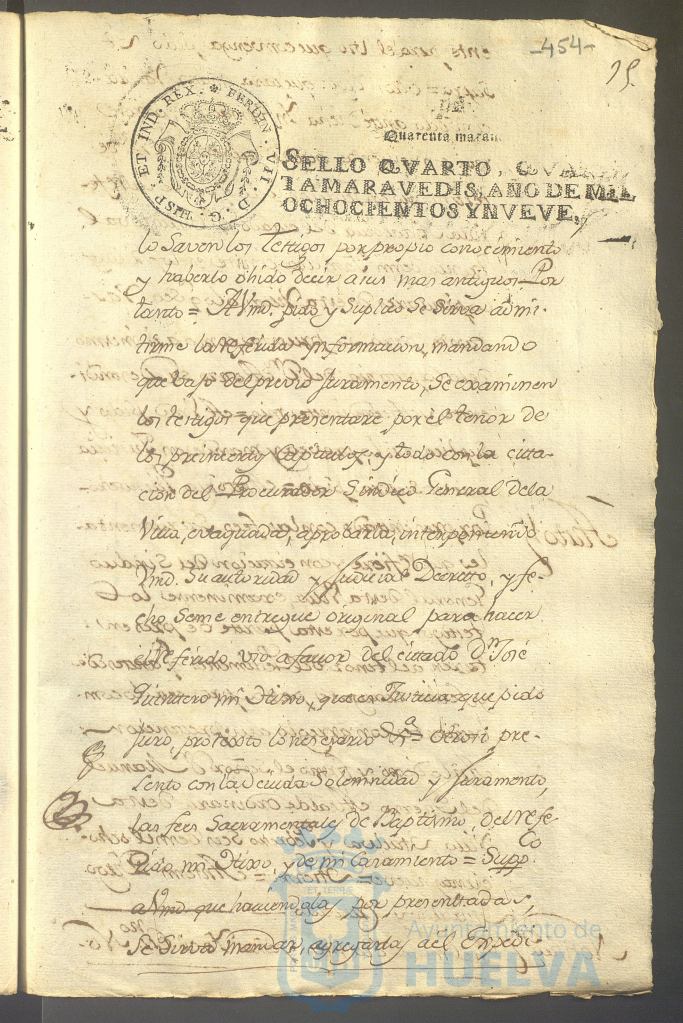 -454-
95.
Quarenta marav
SELLO QVARTO, QVAREN
TA MARAVEDIS, AÑO DE MIL
OCHOCIENTOS Y NUEVE.
HISP. ET IND. REX. FERDIN. VII. D. G.
lo Saven los testigos por propio conocimiento
y haberlo ohido decir a sus mas antiguos Por
tanto = A Vmd. pido y Suplico Se Sirva admi-
tirme la referida ynformacion, mandando
que bajo del previo Juramento, Se examinen
los testigos que presentare por el tenor de
los preinsertos Capitulos, y todo con la citta-
cion del Procurador Sindico General de la
Villa, evaquada, aprobarla, interponiendo
Vmd. Su autoridad y Judicial Decreto, y fe-
cho, Se me entregue original para hacer
el referido uso a favor del citado Dn. José
Quintero mi Hixo, que es Justicia que pido
juro, protesto lo necesario &a = Otrosi pre-
sento con la devida Solemnidad y Juramento,
las fees Sacramentales de Baptismo del refe-
rido mi Hixo, y de mi Casamiento = Suppco
a Vmd. que haviendolas por presentadas,
Se Sirva mandar, agregarlas al Expedi-
Ayuntamiento de
HUELVA